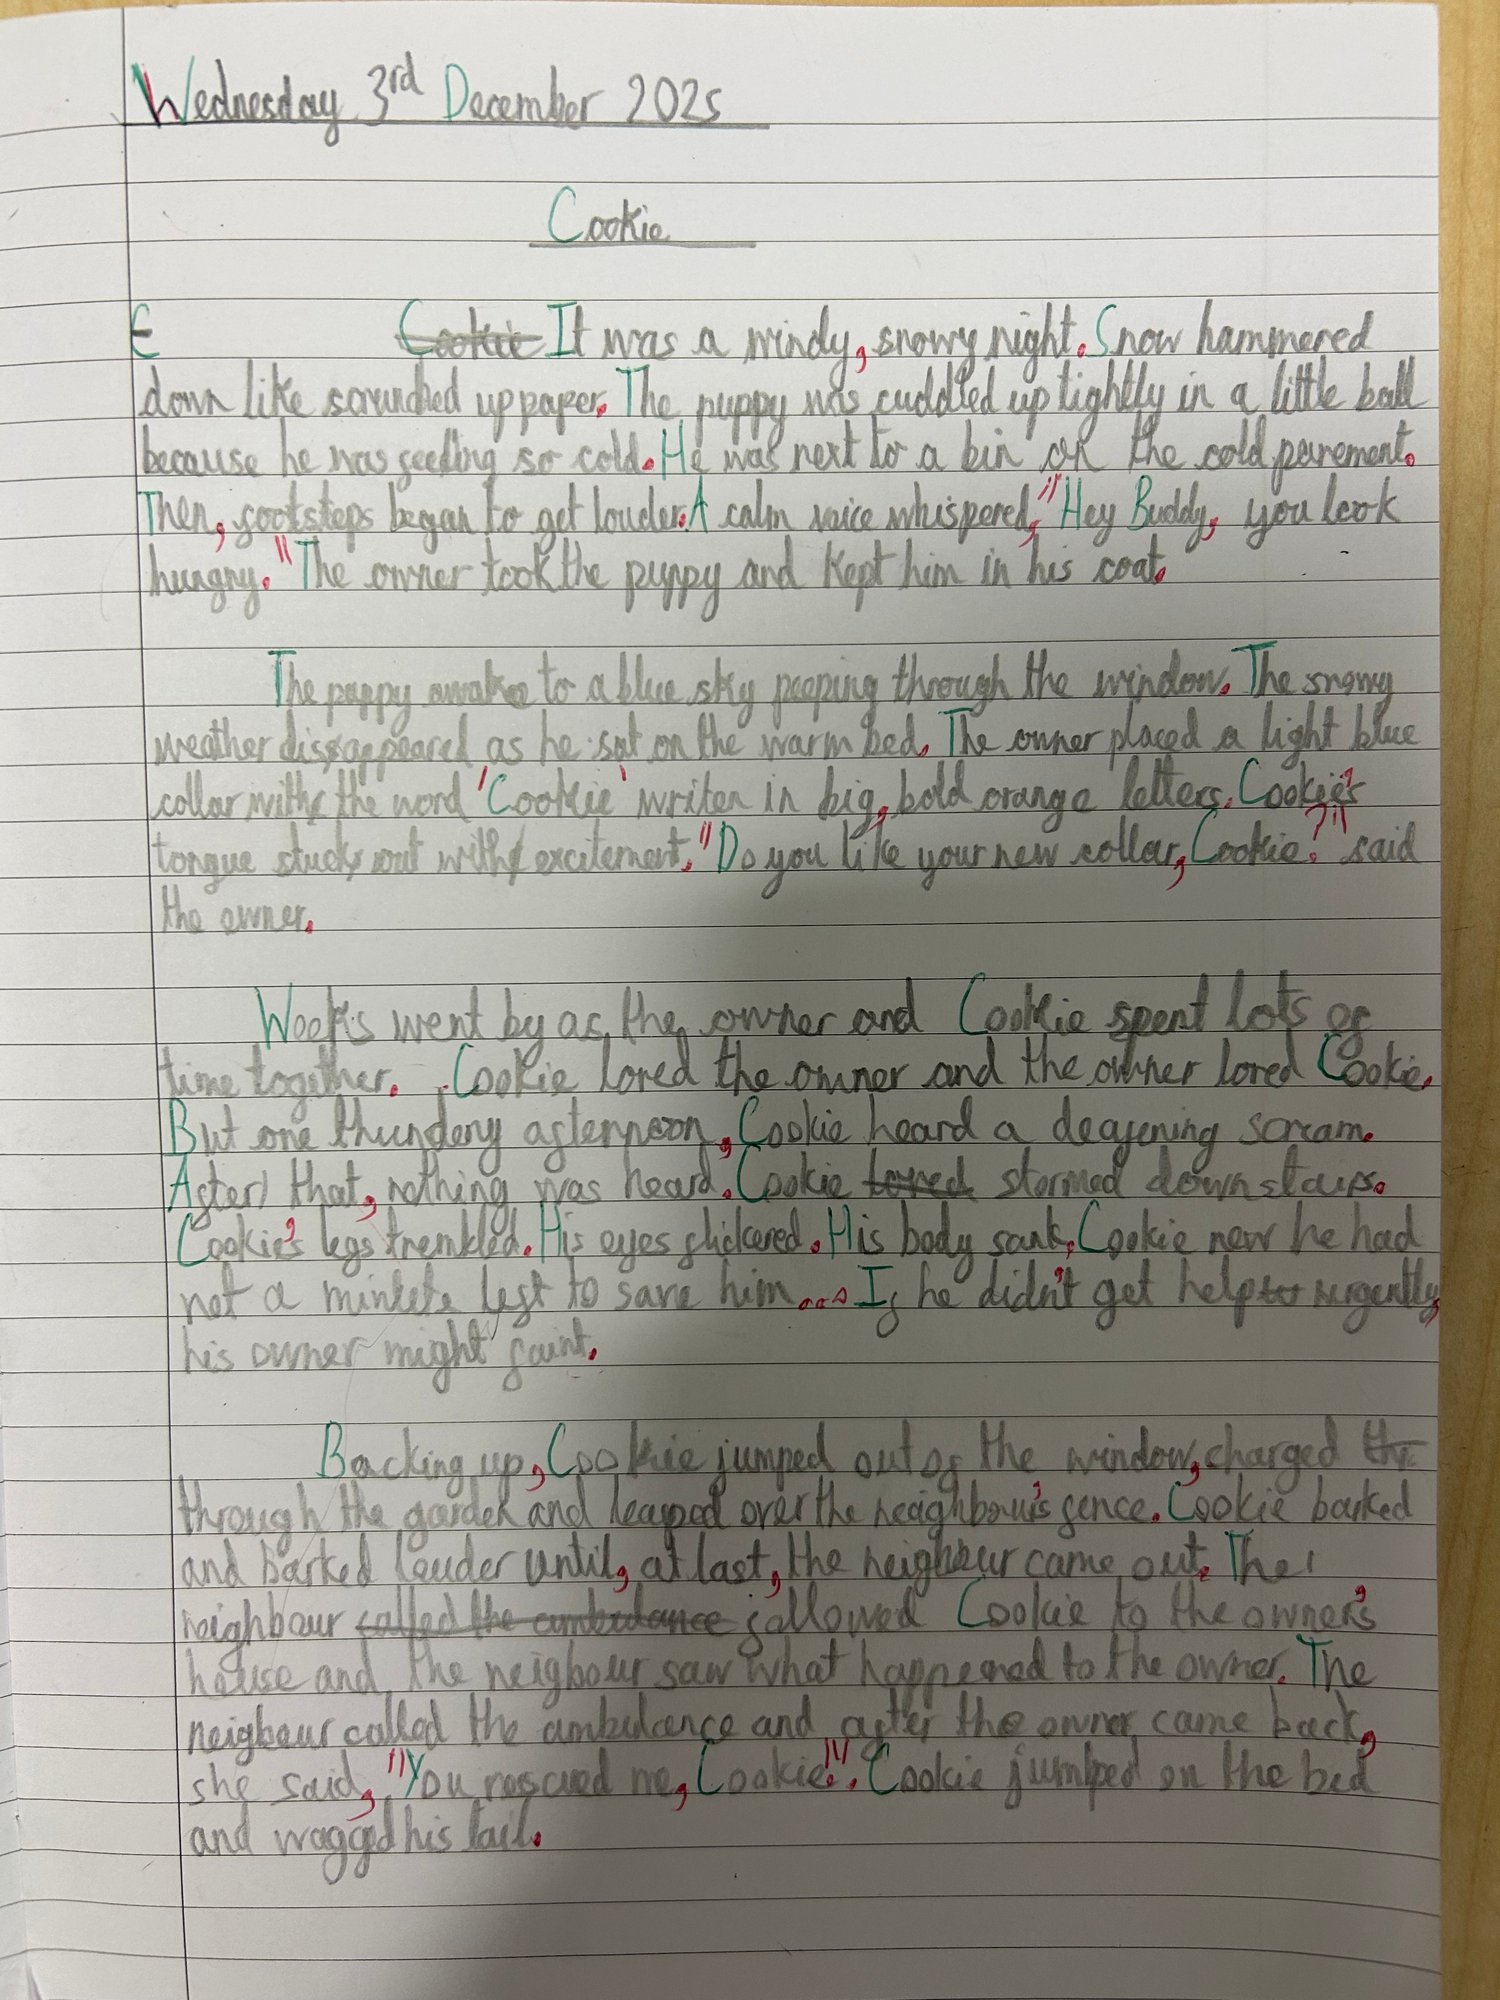 Wednesday 3rd December 2025
Cookie
E Cookie It was a windy, snowy night. Snow hammered
down like scrunched up paper. The puppy was cuddled up tightly in a little ball
because he was feeling so cold. He was next to a bin on the cold pavement.
Then, footsteps began to get louder. A calm voice whispered, "Hey Buddy, you look
hungry." The owner took the puppy and kept him in his coat.
The puppy awakes to a blue sky peeping through the window. The snowy
weather dissappeared as he sat on the warm bed. The owner placed a light blue
collar with the word 'Cookie' writen in big, bold orange letters. Cookie's
tongue stuck out with excitement. "Do you like your new collar, Cookie?" said
the owner.
Weeks went by as the owner and Cookie spent lots of
time together. Cookie loved the owner and the owner loved Cookie.
But one thundery afternoon, Cookie heard a deafening scream.
After that, nothing was heard. Cookie stormed downstairs.
Cookie's legs trembled. His eyes flickered. His body sank. Cookie new he had
not a minute left to save him... If he didn't get help urgently,
his owner might faint.
Backing up, Cookie jumped out of the window, charged
through the garden and leaped over the neighbour's fence. Cookie barked
and barked louder until, at last, the neighbour came out. The
neighbour called the ambulance followed Cookie to the owner's
house and the neighbour saw what happened to the owner. The
neigbour called the ambulance and after the owner came back,
she said, "You rescued me, Cookie!". Cookie jumped on the bed
and wagged his tail.